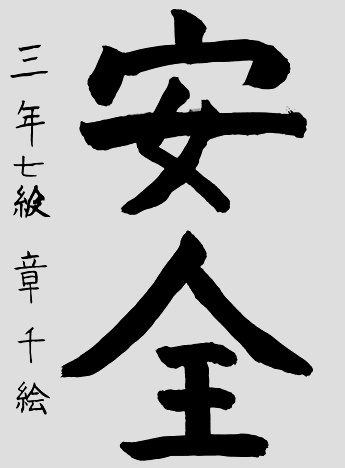 安全
三年七級 章千絵